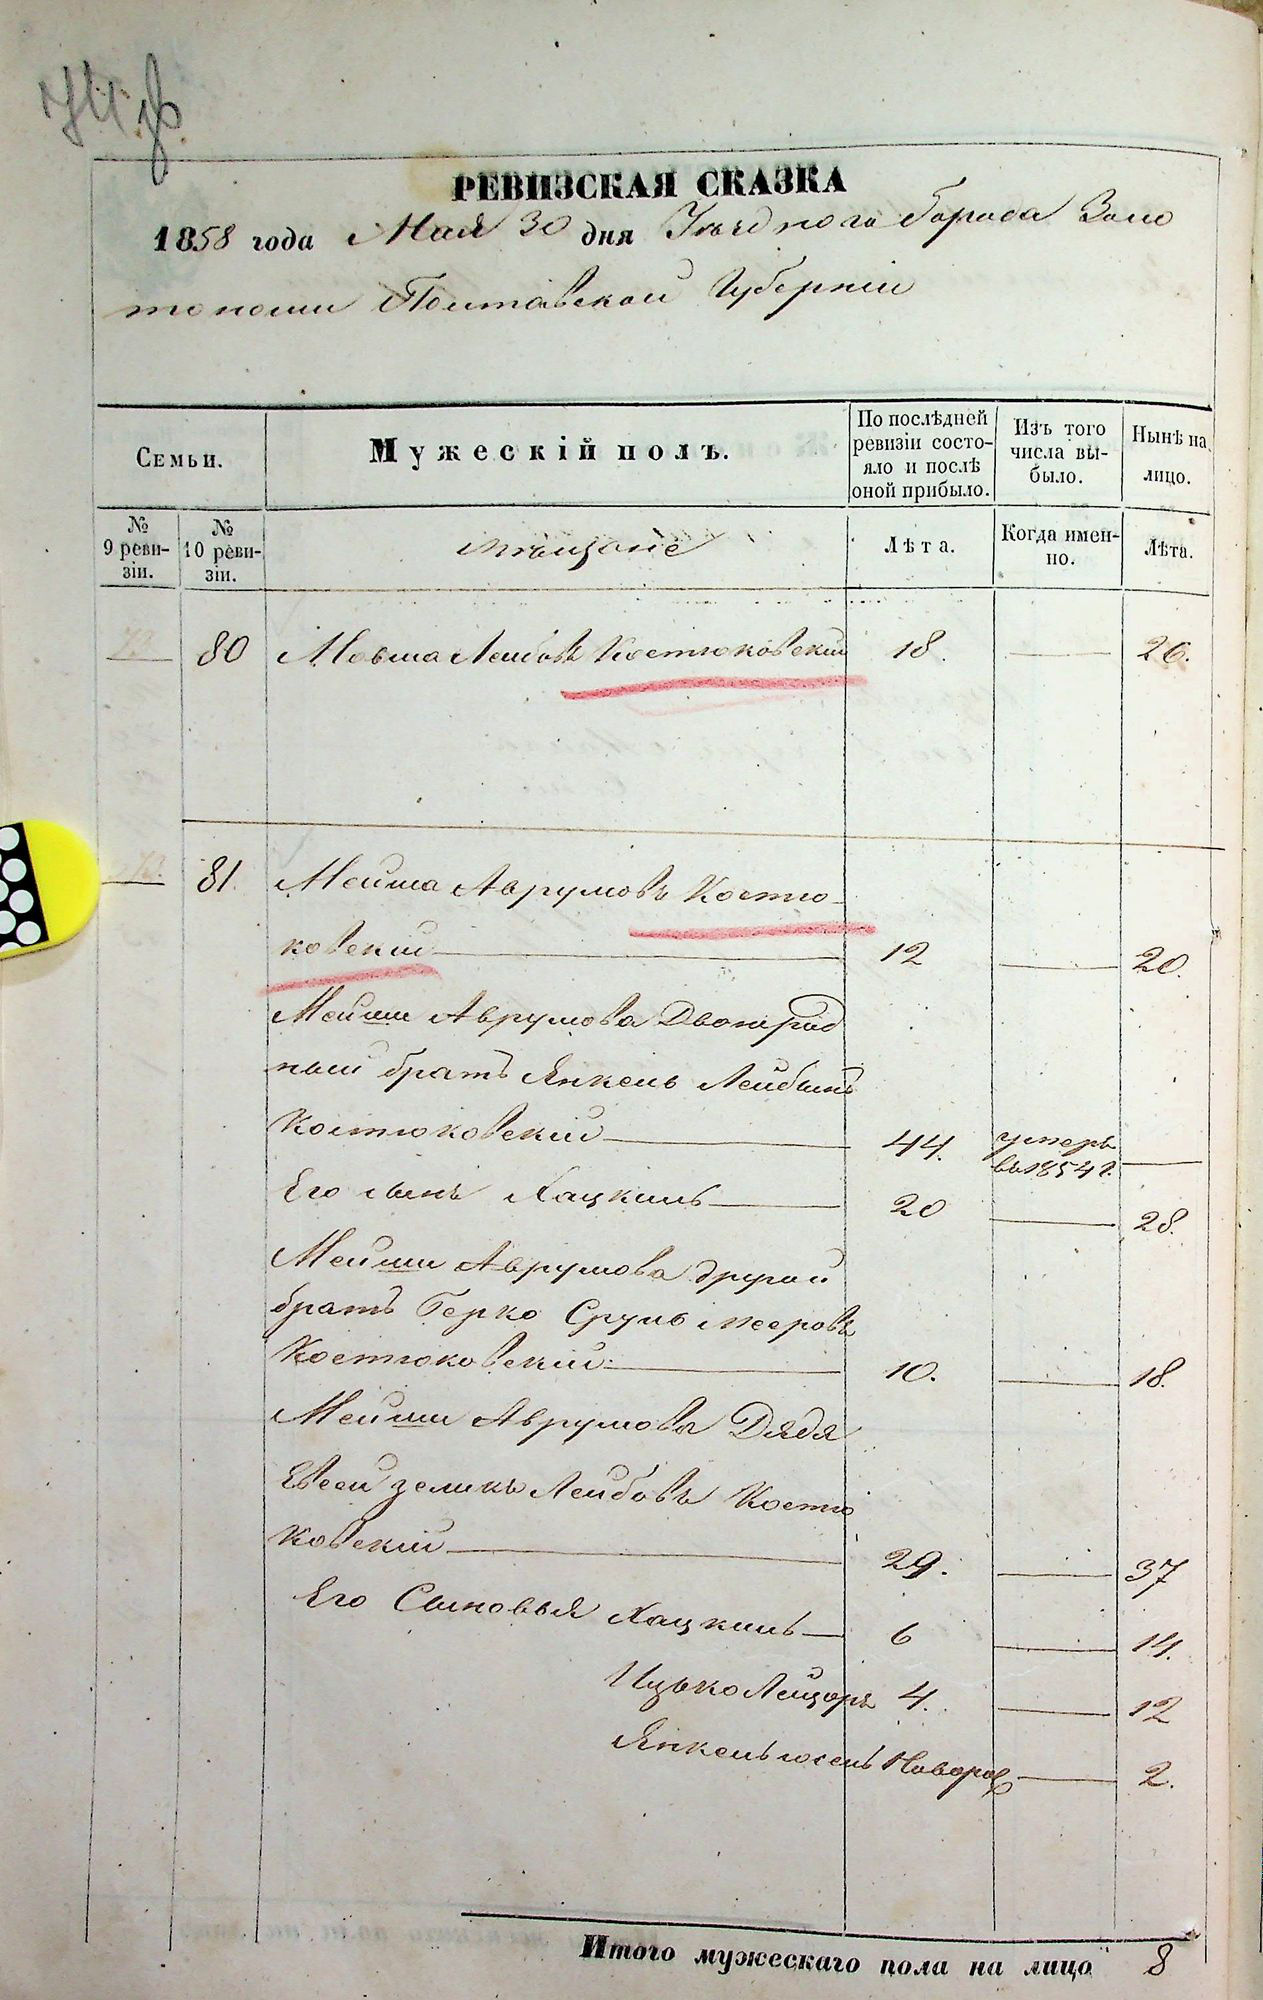 РЕВИЗСКАЯ СКАЗКА
1858 года Мая 30 дня Уѣзднаго города Золо
тоноши Полтавской Губерніи
Семьи.
Мужескій полъ.
По послѣдней ревизіи состо-
яло и послѣ
оной прибыло.
Изъ того
числа вы-
было.
Нынѣ на
лицо.
№
9 реви-
зіи.
№
10 реви-
зіи.
мѣщане
Лѣта.
Когда имен-
но.
Лѣта.
73 80 Мовша Лейбовъ Костюковскій 18. 26.
73. 81. Мейша Аврумовъ Костю-
ковскій 12 20.
Мейши Аврумова Двоюрод
ный братъ Янкель Лейбинъ
Костюковскій 44. умеръ
въ 1854 г.
Его сынъ Хацкиль 20 28.
Мейши Аврумова другой
братъ Берко Сруль Мееровъ
Костюковскій 10. 18.
Мейши Аврумова Дядя
Евсей Зеликъ Лейбовъ Костю
ковскій 29. 37
Его Сыновья Хацкиль 6 14.
Ицько Лейзоръ 4. 12
Янкель Иосель Новорож 2.
Итого мужескаго пола на лицо 8